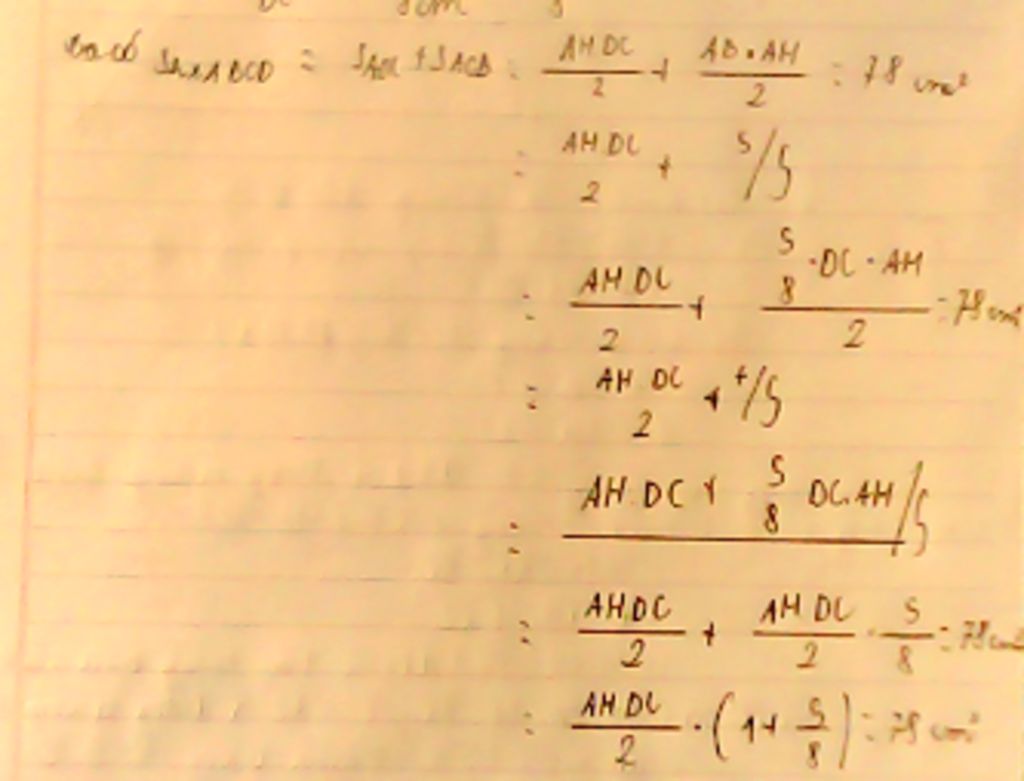 S ABCD = SADC + SACB = AH DC / 2 + AB . AH / 2 = 78 cm²
= AH DC / 2 + 5 /
= AH DC / 2 + 5/8 . DC . AH / 2 = 78 cm²
= AH DC / 2 + + /
= AH. DC + 5/8 DC. AH /
= AH.DC / 2 + AH DC / 2 . 5/8 = 78 cm²
= AH DC / 2 . (1 + 5/8) = 78 cm²